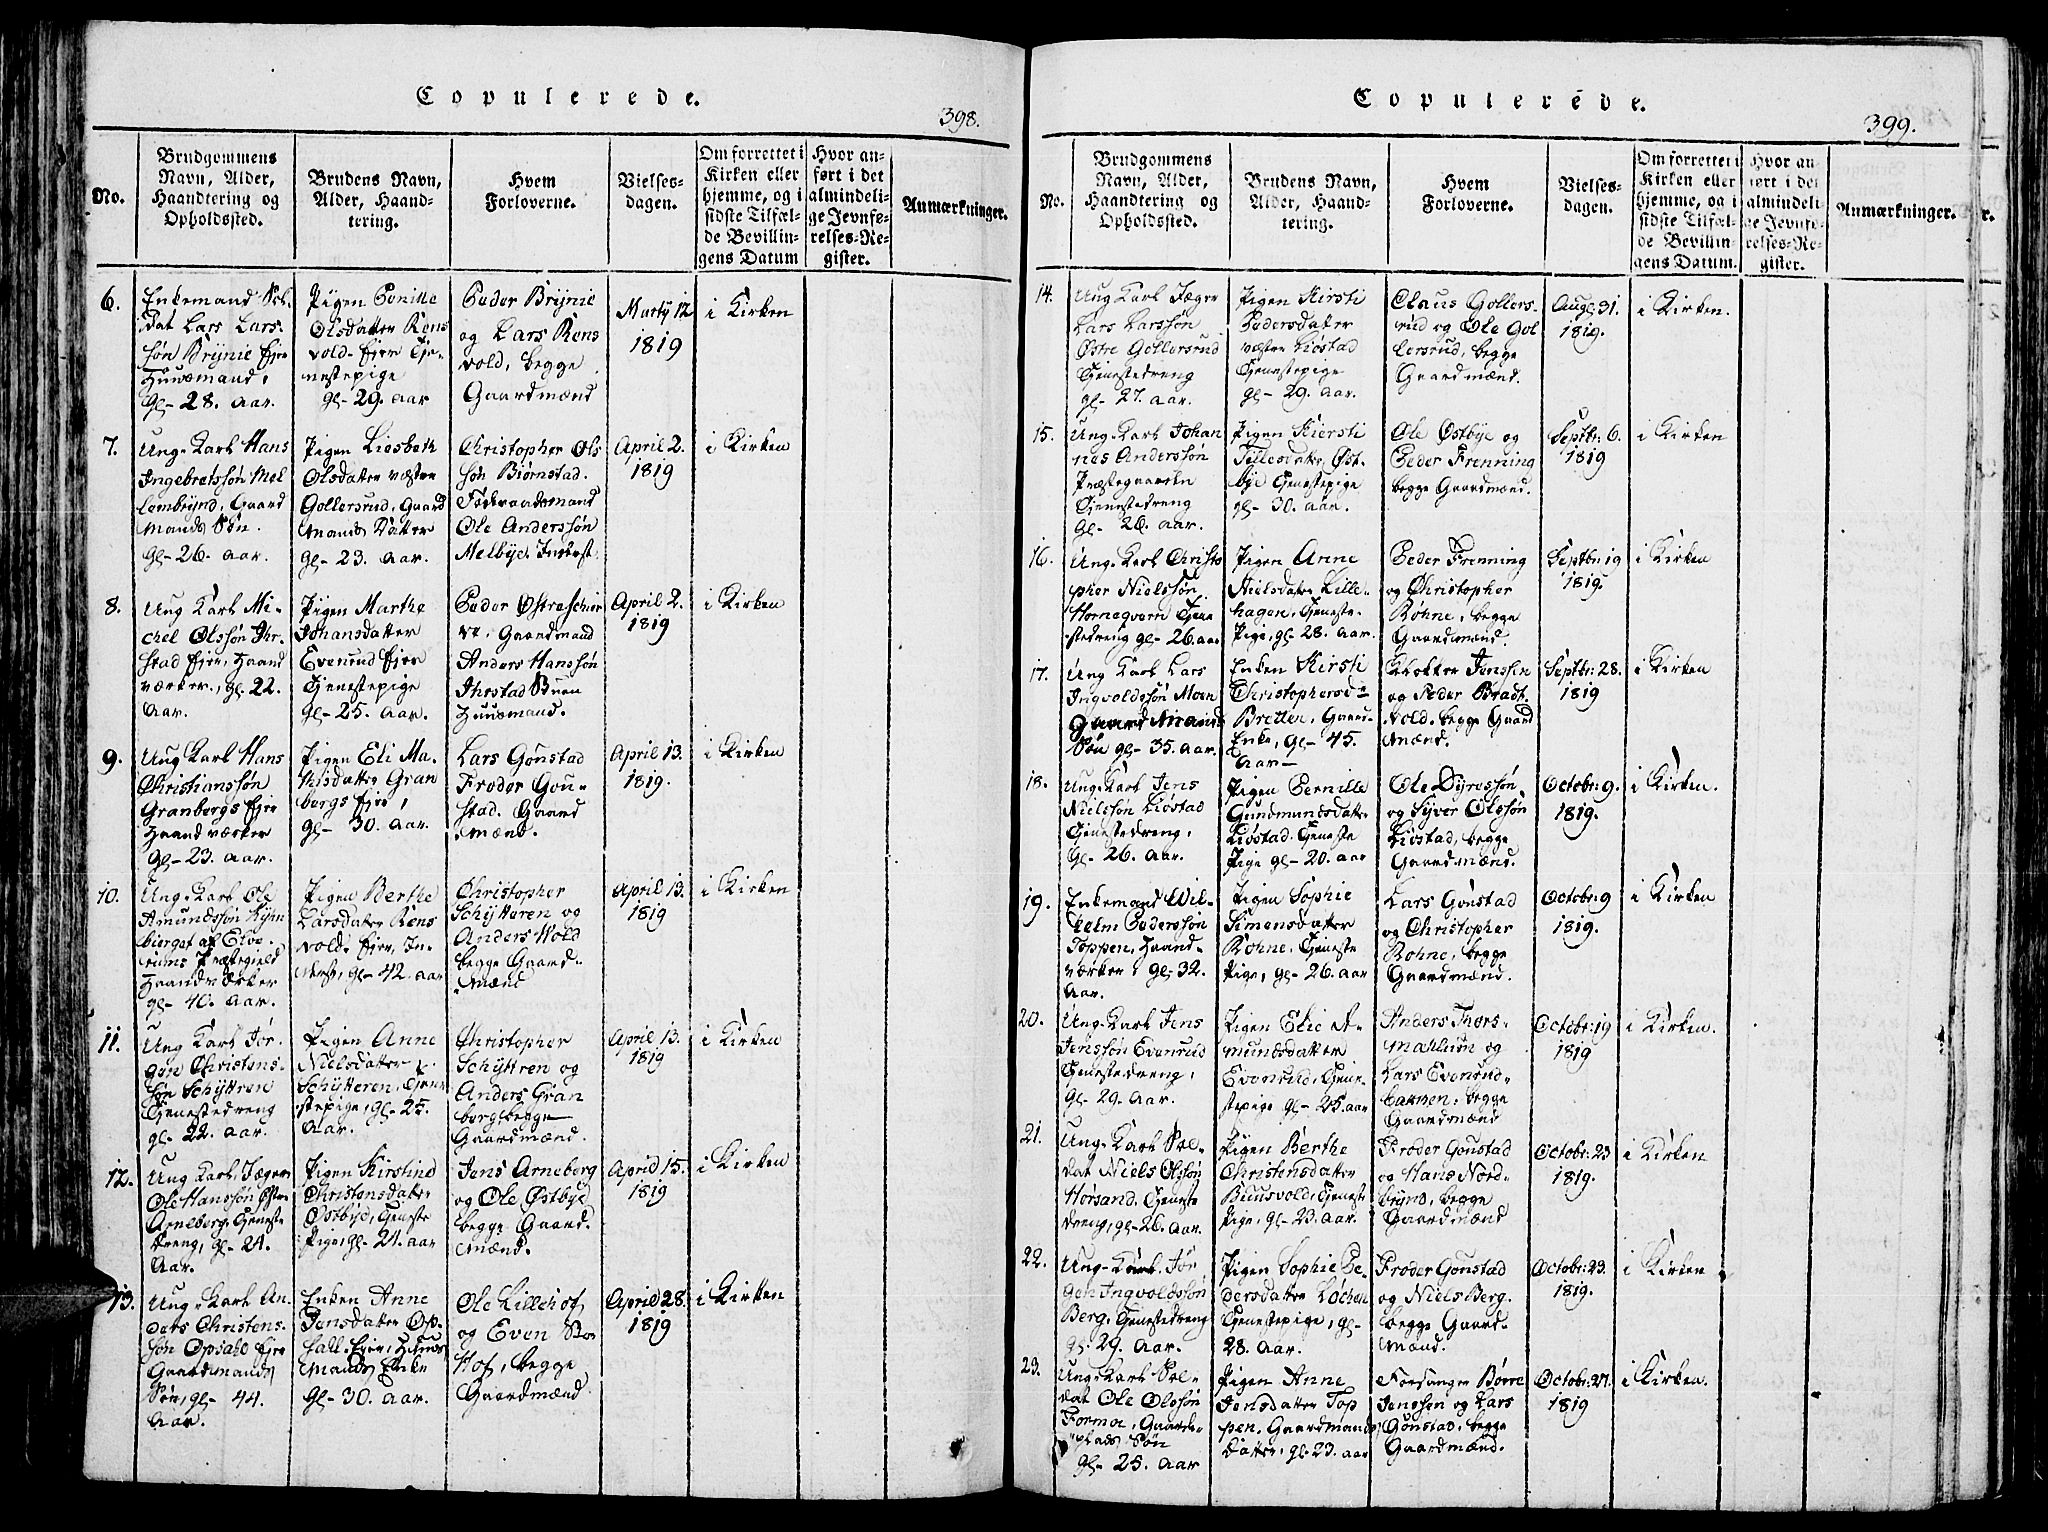 Copulerede.
398.
No.
Brudgommens
Navn, Alder,
Haandtering og
Opholdssted.
Brudens Navn,
Alder, Haand-
tering.
Hvem
Forloverne.
Vielses-
dagen.
Om forrettet i
Kirken eller
hjemme, og i
sidste Tilfæl-
de Bevillin-
gens Datum
Hvor an-
ført i det
almindeli-
ge Jevnfø-
relses-Re-
gister.
Anmærkninger.
6.
Enkemand Sol-
dat Lars Lars-
søn Brÿnie Ejer
Huusmand,
gl- 28. aar.
Pigen Pernille
Olsdatter Rens
vold- Ejer Tje-
nestepige
gl- 29. aar
Peder Brÿnie
og Lars Rens
vold, begge
Gaardmænd
Martÿ 12
1819
i Kirken
7.
Ung-Karl Hans
Ingebretssøn Mel
lembÿnd, Gaard
Mands Søn.
gl- 26. aar.
Pigen Liesbeth
Olsdatter væster
Gollersrud, Gaard
Mands Datter
gl- 23. aar.
Christopher Ols
søn Biørnstad.
Føderaadsmand
Ole Anderssøn
Melbÿe, Inderst.
April 2.
1819
i Kirken
8.
Ung Karl Mi-
chel Olssøn Ihr-
stad Ejer, Haand
værker, gl- 22.
Aar.
Pigen Marthe
Johansdatter
Evenrud Ejer
Tjenestepige
gl- 25. aar.
Peder Østre
Gaardmand
Anders Hanssøn
Ihrstad Buen
Huusmand.
April 2.
1819
i Kirken
9.
Ung Karl Hans
Christianssøn
Granbergs Ejer
Haandværker
gl- 23. aar.
Pigen Eli Ma-
thisdatter Gran
bergs Ejer,
gl- 30. aar.
Lars Gonstad
Froder Gon-
stad. Gaard
mænd.
April 13.
1819.
i Kirken
10.
Ung-Karl Ole
Amundssøn
bierget af Elve-
rums Præstegield
Haandværker
gl- 40. aar.
Pigen Berthe
Larsdatter Rens
vold- Ejer, In-
derst, gl- 42. aar
Christopher
Schÿtteren og
Anders Wold
begge Gaard-
mænd
April 13.
1819
i Kirken
11.
Ung Karl Jør-
gen Christens-
søn Schÿttren
Tjenestedreng
gl- 22. aar.
Pigen Anne
Nielsdatter
Schÿtteren, Tjene
stepige, gl- 25.
Aar.
Christopher
Schÿttren og
Anders Gran
berg begge
Gaardmænd.
April 13.
1819
i Kirken
12.
Ung Karl Jæger
Ole Hanssøn Østre
Arneberg, Tjeneste
dreng, gl- 24.
Aar.
Pigen Kirstine
Christensdatter
Østbÿe, Tjeneste
Pige, gl- 24. aar
Jens Arneberg
og Ole Østbÿe
begge Gaard-
mænd.
April 15.
1819
i Kirken
13.
Ung-Karl An-
ders Christens-
søn Opsahl Ejer
Gaardmands
Søn, gl- 44.
Aar.
Enken Anne
Jensdatter Op-
sahl- Ejer, Huus
mands Enke
gl- 30. aar.
Ole Lillehof
og Even Sto
Hof, begge
Gaardmænd
April 28.
1819
i Kirken
Copulerede.
399.
No.
Brudgommens
Navn, Alder,
Haandtering og
Opholdssted.
Brudens Navn,
Alder, Haand-
tering.
Hvem
Forloverne.
Vielses-
dagen.
Om forrettet i
Kirken eller
hjemme, og i
sidste Tilfæl-
de Bevillin-
gens Datum.
Hvor an-
ført i det
almindeli-
ge Jevnfø-
relses-Re-
gister.
Anmærkninger.
14.
Ung Karl Jæger
Lars Larssøn
Østre Gollersrud
Tjenestedreng
gl- 27. aar.
Pigen Kirsti
Pedersdatter
væster Liøstad
Tjenestepige
gl- 29. aar.
Claus Gollers-
rud og Ole Gol
lersrud, begge
Gaardmænd.
Aug: 31.
1819.
i Kirken.
15.
Ung-Karl Johan
nes Anderssøn
Præstegaarden
Tjenestedreng
gl- 26. aar.
Pigen Kiersti
Tillesdatter Øst-
bÿe Tjenestepige
gl- 30. aar.
Ole Østbÿe og
Peder Frenning
begge Gaardmænd.
Septbr: 6.
1819
i Kirken
16.
Ung-Karl Christo
pher Nielssøn
Hornqvern Tjene
stedreng gl- 26. aar
Pigen Anne
Nielsdatter Lille-
hagen, Tjeneste-
Pige, gl- 28. aar.
Peder Frenning
og Christopher
Bøhne, begge
Gaardmænd.
Septbr: 19
1819.
i Kirken
17.
Ung Karl Lars
Ingvoldssøn Moen
Gaard Mand
Søn gl- 35. aar.
Enken Kirsti
Christophersd-
Bretten, Gaard-
Enke, gl- 45.
Aar-
Klokker Jenssen
og Peder Bradt-
vold, begge Gaard
mænd.
Septbr: 28.
1819
i Kirken
18.
Ung-Karl Jens
Nielssøn Liøstad
Tjenestedreng,
gl- 26. aar.
Pigen Pernille
Gundmundsdatter
Liøstad, Tjeneste
Pige gl- 20. aar
Ole Dÿressøn
og Sÿver Olssøn
Liøstad, begge
Gaardmænd.
Octobr: 9.
1819.
i Kirken.
19.
Enkemand Wil-
helm Pederssøn
Toppen, Haand-
værker, gl- 32.
Aar.
Pigen Sophie
Simensdatter
Bohne, Tjeneste
Pige, gl- 26. aar
Lars Gonstad
og Christopher
Bohne, begge
Gaardmænd.
Octobr: 9
1819.
i Kirken
20.
Ung-Karl Jens
Jenssøn Evenrud
Tjenestedreng,
gl- 29. aar.
Pigen Elie A-
mundsdatter
Evenrud, Tjene-
stepige gl- 25. aar
Anders Thors-
og
Lars Evenrud-
bakken, begge
Gaardmænd
Octobr: 19
1819
i Kirken.
21.
Ung-Karl Sol-
dat Niels Olssøn
Horsand, Tjeneste
dreng, gl- 26. aar.
Pigen Berthe
Christensdatter
Buusvold, Tjeneste
Pige, gl- 23. aar.
Froder Gonstad
og Hans Nord-
brÿnd, begge
Gaardmænd
Octobr: 23
1819.
i Kirken
22.
Ung-Karl Jør
gen Ingvoldssøn
Berg, Tjenestedreng
gl- 29. aar.
Pigen Sophie Pe-
dersdatter Løchen
Tjenestepige, gl-
28. aar.
Froder Gonstad
og Niels Berg.
begge Gaard-
mænd.
Octobr: 23.
1819.
i Kirken
23.
Ung-Karl Sol-
dat Ole Olssøn
Formoe, Gaard-
Søn
gl- 25. aar
Pigen Anne
Jensdatter Top
pen, Gaardmands
Datter, gl- 23. aar
Forsanger Børre
Jenssen og Lars
Gonstad, begge
Gaardmænd.
Octobr: 27.
1819
i Kirken.